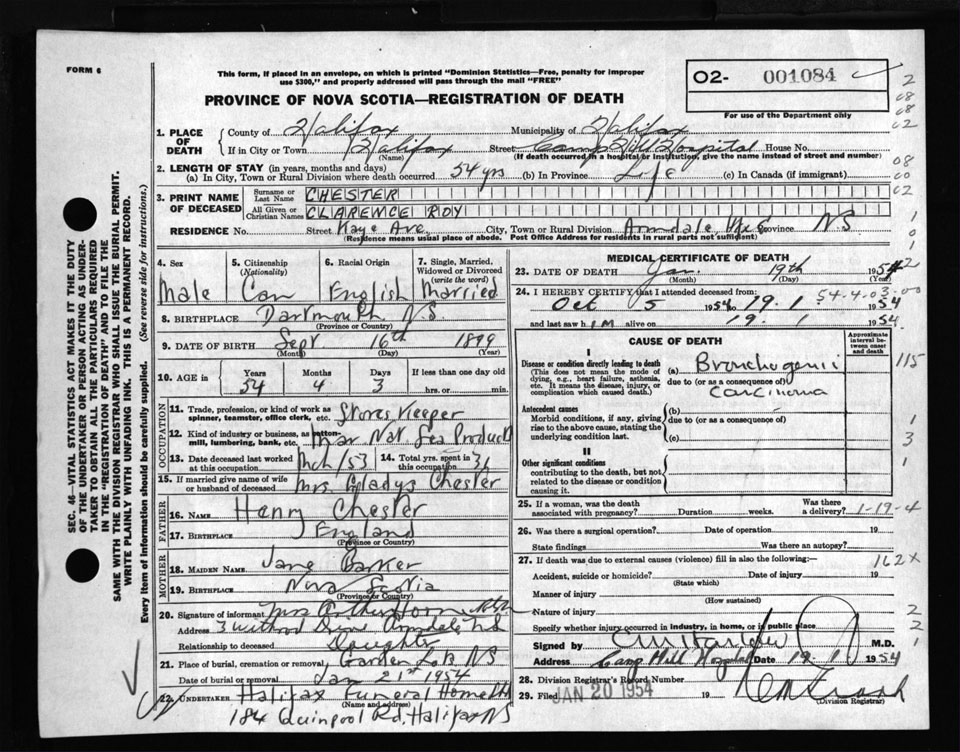 FORM 6
This form, if placed in an envelope, on which is printed "Dominion Statistics—Free, penalty for improper
use $300," and properly addressed will pass through the mail "FREE"
O2- 001084
For use of the Department only
PROVINCE OF NOVA SCOTIA—REGISTRATION OF DEATH
1. PLACE OF DEATH
County of Halifax Municipality of Halifax
If in City or Town Halifax Street Camp Hill Hospital House No.
(Name) (If death occurred in a hospital or institution, give the name instead of street and number)
2. LENGTH OF STAY (in years, months and days)
(a) In City, Town or Rural Division where death occurred 54 yrs (b) In Province Life (c) In Canada (if immigrant)
3. PRINT NAME OF DECEASED
Surname or Last Name CHESTER
All Given or Christian Names CLARENCE ROY
RESIDENCE No. Street Kaye Ave. City, Town or Rural Division Armdale, Hfx Co Province N.S.
(Residence means usual place of abode. Post Office Address for residents in rural parts not sufficient)
4. Sex Male
5. Citizenship (Nationality) Can
6. Racial Origin English
7. Single, Married, Widowed or Divorced (write the word) Married
8. BIRTHPLACE Dartmouth N.S.
(Province or Country)
9. DATE OF BIRTH Sept 16th 1899
(Month) (Day) (Year)
10. AGE in Years 54 Months 4 Days 3 If less than one day old hrs. or min.
OCCUPATION
11. Trade, profession, or kind of work as spinner, teamster, office clerk, etc. Stores Keeper
12. Kind of industry or business, as cotton-mill, lumbering, bank, etc. Mar Nat Sea Products
13. Date deceased last worked at this occupation Mch/53
14. Total yrs. spent in this occupation 31
15. If married give name of wife or husband of deceased Mrs. Gladys Chester
FATHER
16. NAME Henry Chester
17. BIRTHPLACE England
(Province or Country)
MOTHER
18. MAIDEN NAME Jane Barker
19. BIRTHPLACE Nova Scotia
(Province or Country)
20. Signature of informant Mrs Arthur Horn
Address 3 Drive Armdale N.S.
Relationship to deceased Daughter
21. Place of burial, cremation or removal Garden NS
Date of burial or removal Jan 21st 1954
22. UNDERTAKER Halifax Funeral Home Ltd
(Name and address)
184 Quinpool Rd, Halifax NS
MEDICAL CERTIFICATE OF DEATH
23. DATE OF DEATH Jan. 19th 1954
(Month) (Day) (Year)
24. I HEREBY CERTIFY that I attended deceased from:
Oct 5 1954 19. 1 1954
and last saw him alive on 19. 1 1954.
CAUSE OF DEATH
Approximate interval between onset and death
I
Disease or condition directly leading to death
(This does not mean the mode of dying, e.g., heart failure, asthenia, etc. It means the disease, injury, or complication which caused death.)
(a) Bronchogenic
due to (or as a consequence of)
Carcinoma
Antecedent causes
Morbid conditions, if any, giving rise to the above cause, stating the underlying condition last.
(b)
due to (or as a consequence of)
(c)
II
Other significant conditions
contributing to the death, but not related to the disease or condition causing it.
25. If a woman, was the death associated with pregnancy? Duration weeks. Was there a delivery? 1-19-4
26. Was there a surgical operation? Date of operation 19
State findings Was there an autopsy?
27. If death was due to external causes (violence) fill in also the following:—
162X
Accident, suicide or homicide? Date of injury 19
(State which)
Manner of injury
(How sustained)
Nature of injury
Specify whether injury occurred in industry, in home, or in public place
Signed by M.D.
Address Camp Hill Hospital Date 19. 1 1954
28. Division Registrar's Record Number
29. Filed JAN 20 1954 19
(Division Registrar)
SEC. 46—VITAL STATISTICS ACT MAKES IT THE DUTY
OF THE UNDERTAKER OR PERSON ACTING AS UNDER-
TAKER TO OBTAIN ALL THE PARTICULARS REQUIRED
IN THE "REGISTRATION OF DEATH" AND TO FILE THE
SAME WITH THE DIVISION REGISTRAR WHO SHALL ISSUE THE BURIAL PERMIT.
WRITE PLAINLY WITH UNFADING INK. THIS IS A PERMANENT RECORD.
Every item of information should be carefully supplied. (See reverse side for instructions.)